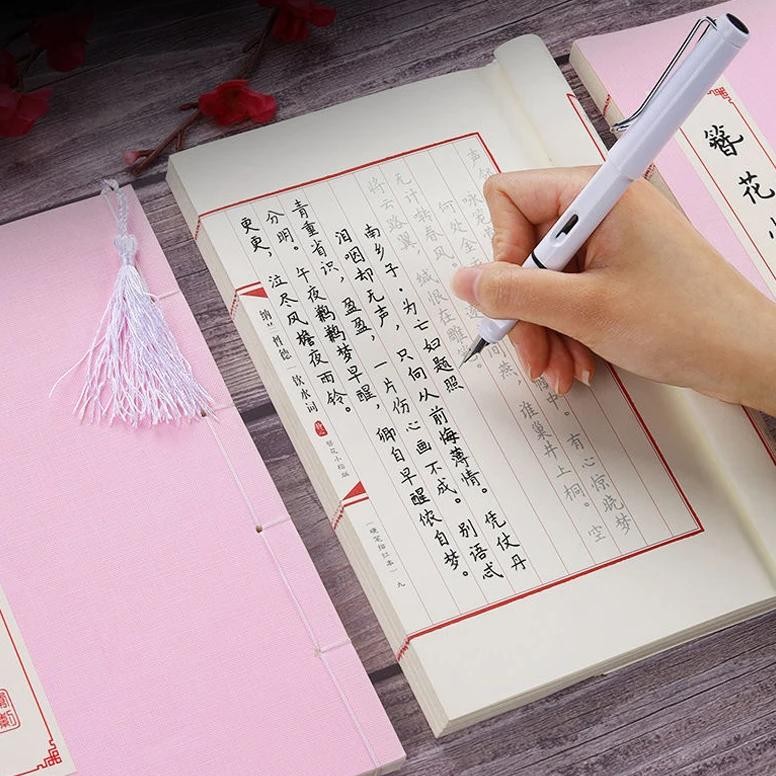 簪花小
声
何处金
中。有心惊晓梦
无计啭春风
逐
间燕，谁巢井上桐。空
将云路翼，缄恨在雕笼
南乡子·为亡妇题照
泪咽却无声，只向从前悔薄情。凭仗丹
青重省识，盈盈，一片伤心画不成。别语忒
分明。午夜鹣鹣梦早醒，卿自早醒侬自梦。
更更，泣尽风檐夜雨铃。
纳兰性德｜饮水词
簪花小楷版
〔硬笔描红本〕九